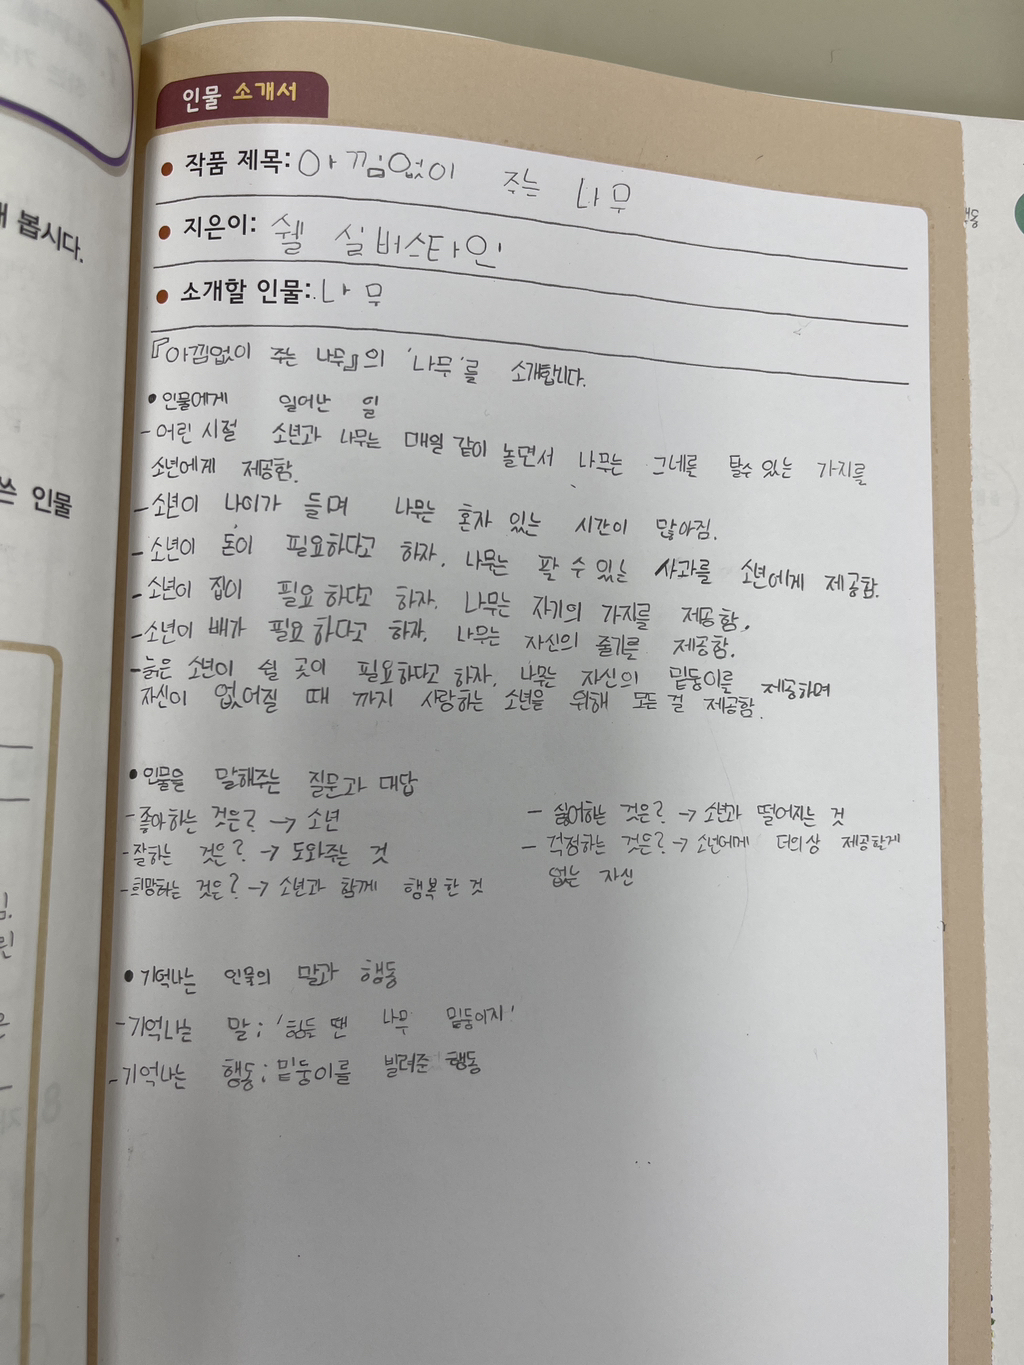 인물 소개서
작품 제목: 아낌없이 주는 나무
지은이: 쉘 실버스타인
소개할 인물: 나무
『아낌없이 주는 나무』의 '나무'를 소개합니다.
• 인물에게 일어난 일
- 어린 시절 소년과 나무는 매일 같이 놀면서 나무는 그네를 탈수 있는 가지를
소년에게 제공함.
- 소년이 나이가 들며 나무는 혼자 있는 시간이 많아짐.
- 소년이 돈이 필요하다고 하자, 나무는 팔 수 있는 사과를 소년에게 제공함.
- 소년이 집이 필요하다고 하자, 나무는 자기의 가지를 제공함.
- 소년이 배가 필요하다고 하자, 나무는 자신의 줄기를 제공함.
- 늙은 소년이 쉴 곳이 필요하다고 하자, 나무는 자신의 밑둥이를 제공하며
자신이 없어질 때 까지 사랑하는 소년을 위해 모든 걸 제공함.
• 인물을 말해주는 질문과 대답
- 좋아하는 것은? → 소년
- 잘하는 것은? → 도와주는 것
- 희망하는 것은? → 소년과 함께 행복한 것
- 싫어하는 것은? → 소년과 떨어지는 것
- 걱정하는 것은? → 소년에게 더이상 제공할게
없는 자신
• 기억나는 인물의 말과 행동
- 기억나는 말; '힘든 땐 나무 밑둥이지!'
- 기억나는 행동; 밑둥이를 빌려준 행동
봅시다.
쓴 인물